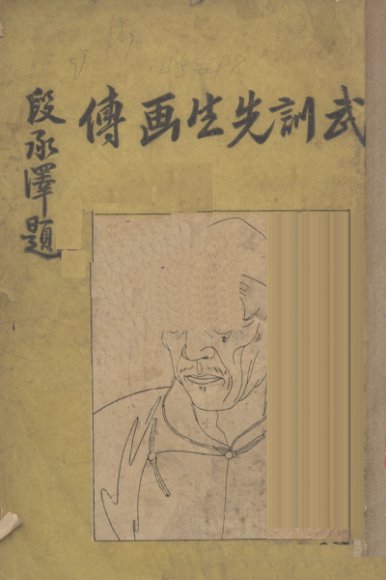 武訓先生画傳
段承澤題